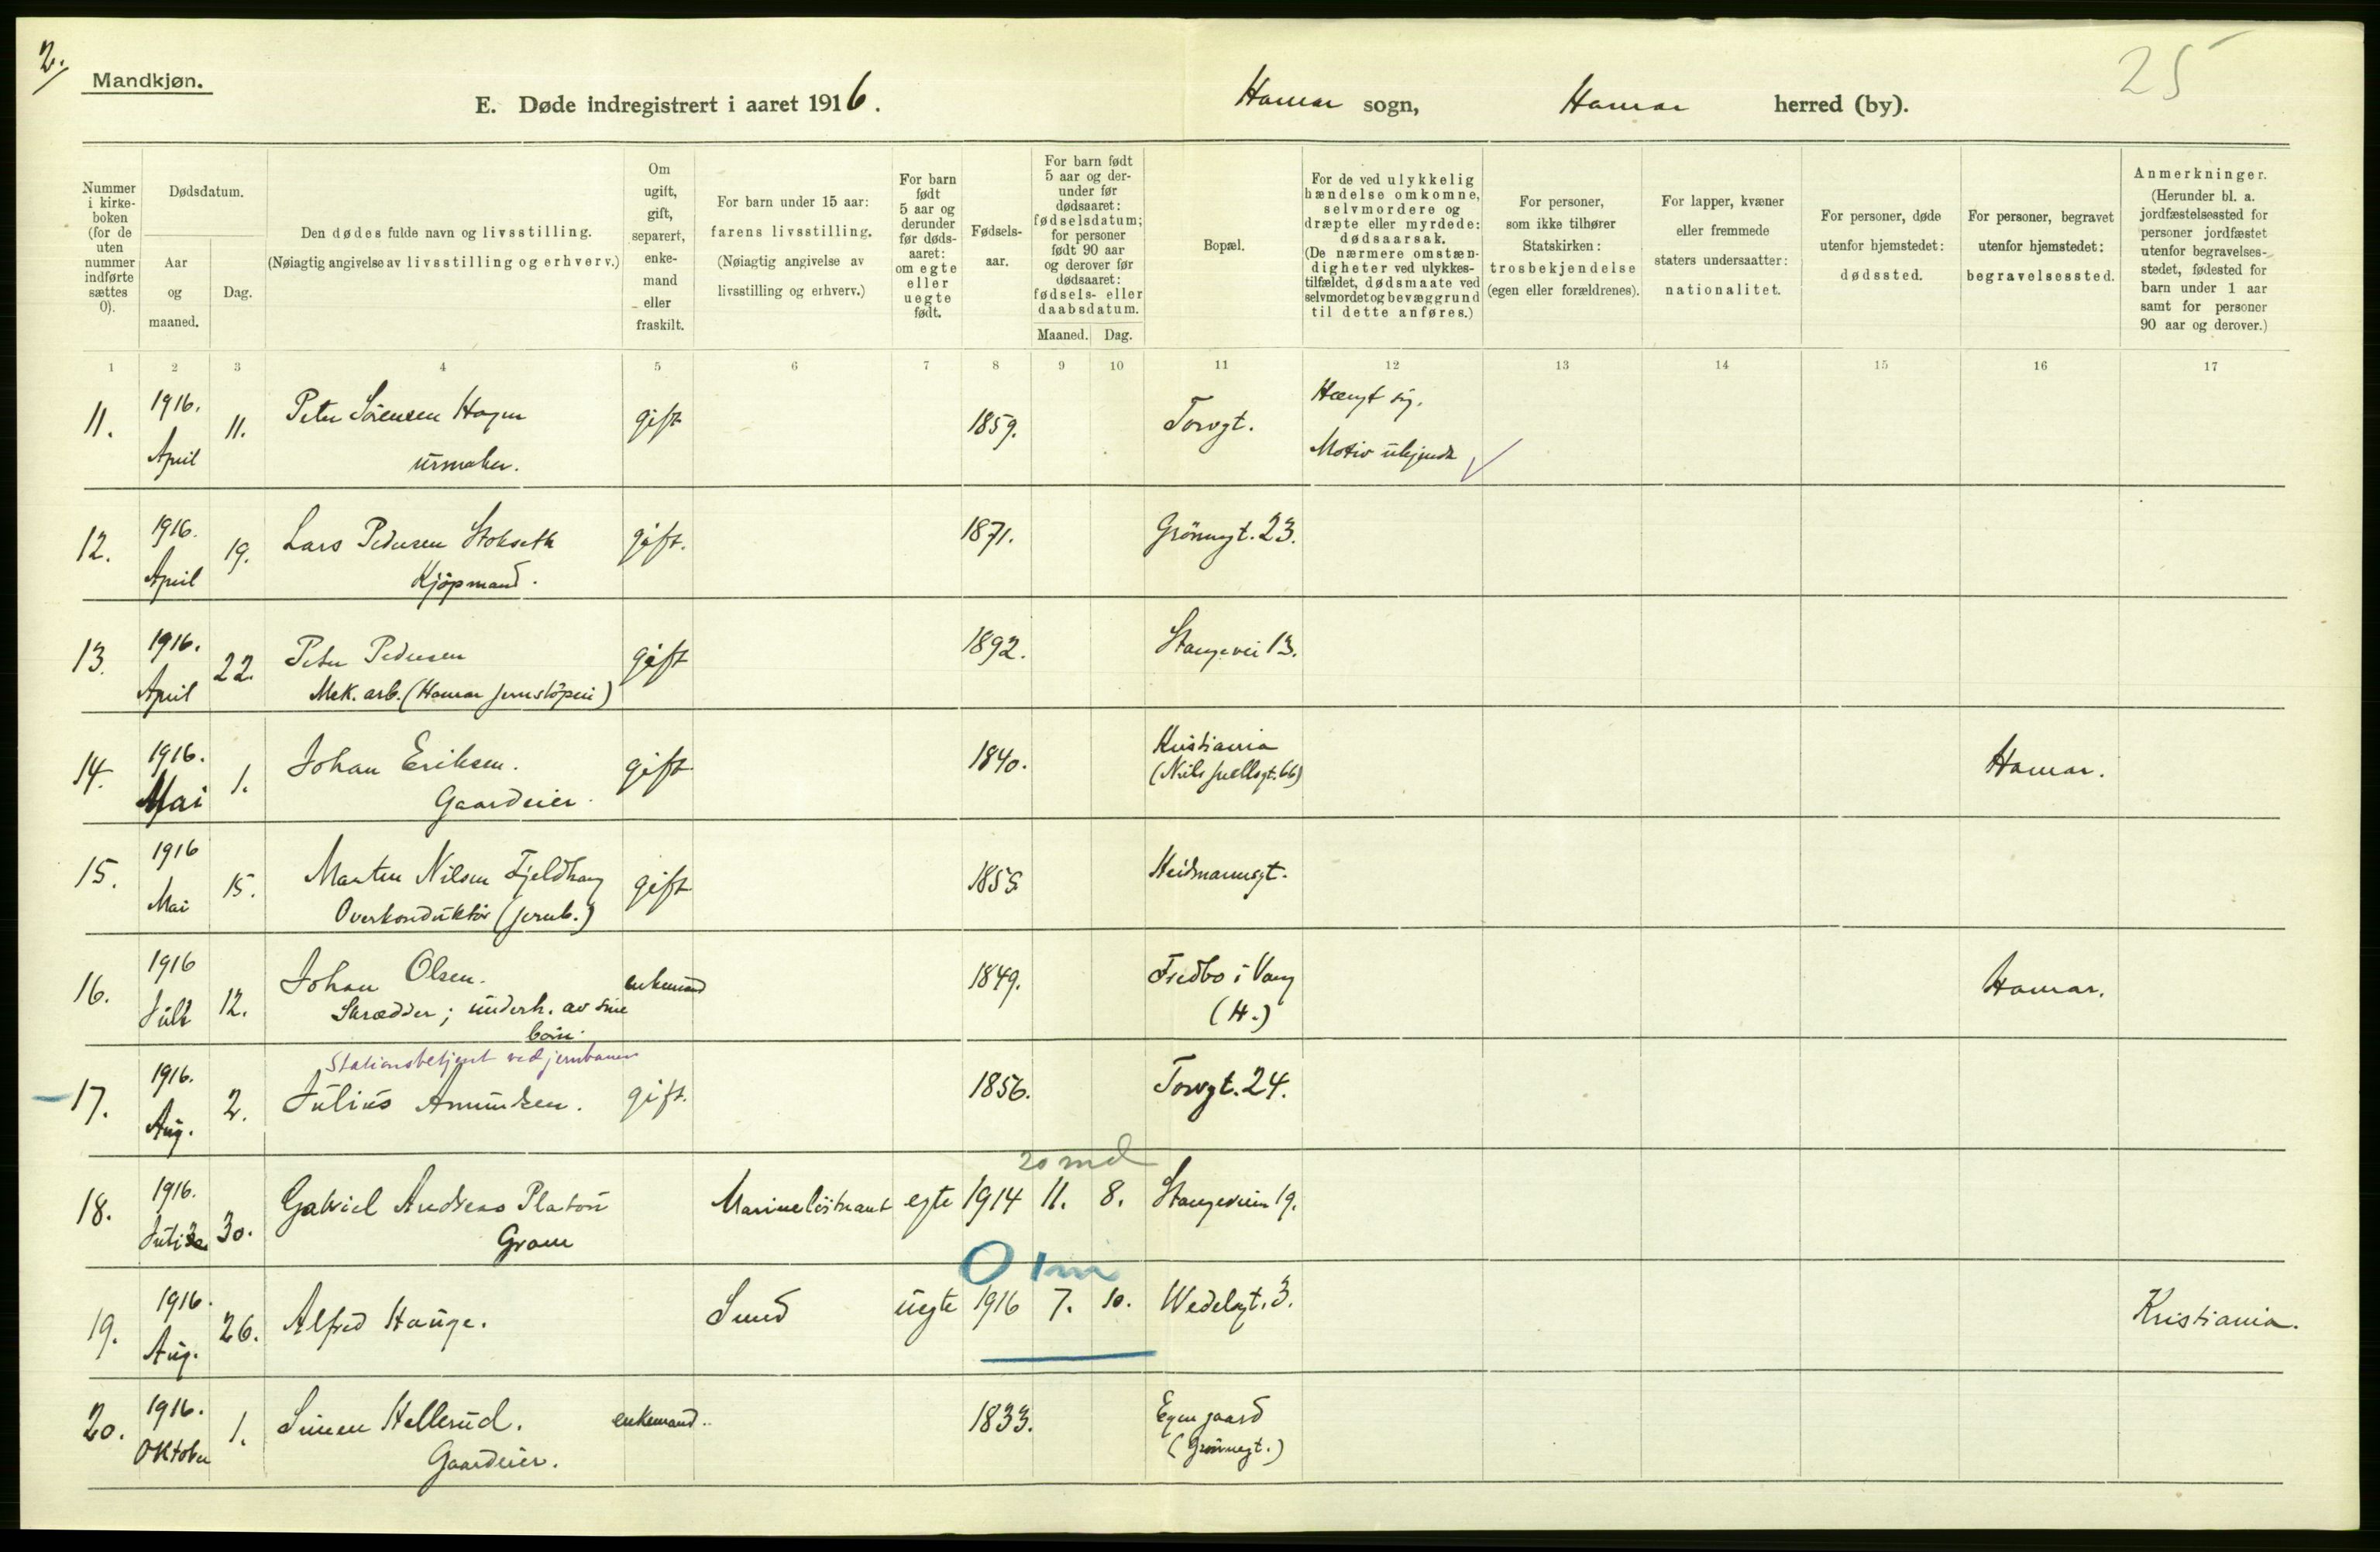 2.
Mandkjøn.
E. Døde indregistrert i aaret 1916.
Hamar sogn,
Hamar herred (by).
25
Nummer i kirke-boken (for de uten nummer indførte sættes 0).
Dødsdatum.
Aar og maaned.
Dag.
Den dødes fulde navn og livsstilling.
(Nøiagtig angivelse av livsstilling og erhverv.)
Om ugift, gift, separert, enke-mand eller fraskilt.
For barn under 15 aar: farens livsstilling. (Nøiagtig angivelse av livsstilling og erhverv.)
For barn født 5 aar og derunder før døds-aaret: om egte eller uegte født.
Fødsels-aar.
For barn født 5 aar og der-under før dødsaaret: fødselsdatum; for personer født 90 aar og derover før dødsaaret: fødsels- eller daabsdatum.
Maaned. Dag.
Bopæl.
For de ved ulykkelig hændelse omkomne, selvmordere og dræpte eller myrdede: dødsaarsak. (De nærmere omstæn-digheter ved ulykkes-tilfældet, dødsmaate ved selvmordet og bevæggrund til dette anføres.)
For personer, som ikke tilhører Statskirken: trosbekjendelse (egen eller forældrenes).
For lapper, kvæner eller fremmede staters undersaatter: nationalitet.
For personer, døde utenfor hjemstedet: dødssted.
For personer, begravet utenfor hjemstedet: begravelsessted.
Anmerkninger. (Herunder bl. a. jordfæstelsessted for personer jordfæstet utenfor begravelses-stedet, fødested for barn under 1 aar samt for personer 90 aar og derover.)
1 2 3 4 5 6 7 8 9 10 11 12 13 14 15 16 17
11. 1916. April 11. Peter Sörensen Hagen gift 1859. Torvgt. Hængt sig.
urmaker. Motiv ukjendt
12. 1916. April 19. Lars Pedersen Stokseth gift. 1871. Grönnegt. 23.
Kjöpmand.
13. 1916. April 22. Peter Pedersen gift 1892. Stangevei 13.
Mek. arb. (Hamar jernstöperi)
14. 1916. Mai 1. Johan Eriksen. gift 1840. Kristiania Hamar.
Gaardeier. (Nils Juellsgt. 66)
15. 1916 Mai 15. Marten Nilsen Fjeldhaug gift 1855 Heidmannsgt.
Overkonduktör (jernb.)
16. 1916 Juli 12. Johan Olsen. enkemand 1849. Fredbo i Vang Hamar.
Skrædder; underh. av sine (H.)
börn.
Stationsbetjent ved jernbanen
17. 1916. Aug. 2. Julius Amundsen. gift. 1856. Torvgt. 24.
20 md
18. 1916. Juli 30. Gabriel Andreas Platou Marinelöitnant egte 1914 11. 8. Stangeveien 19.
Gram
0 1 m
19. 1916. Aug. 26. Alfred Hauge. Smed uegte 1916 7. 10. Wedelsgt. 3. Kristiania.
20. 1916. Oktober 1. Simen Hellerud. enkemand. 1833. Egen gaard
Gaardeier. (Grönnegt.)